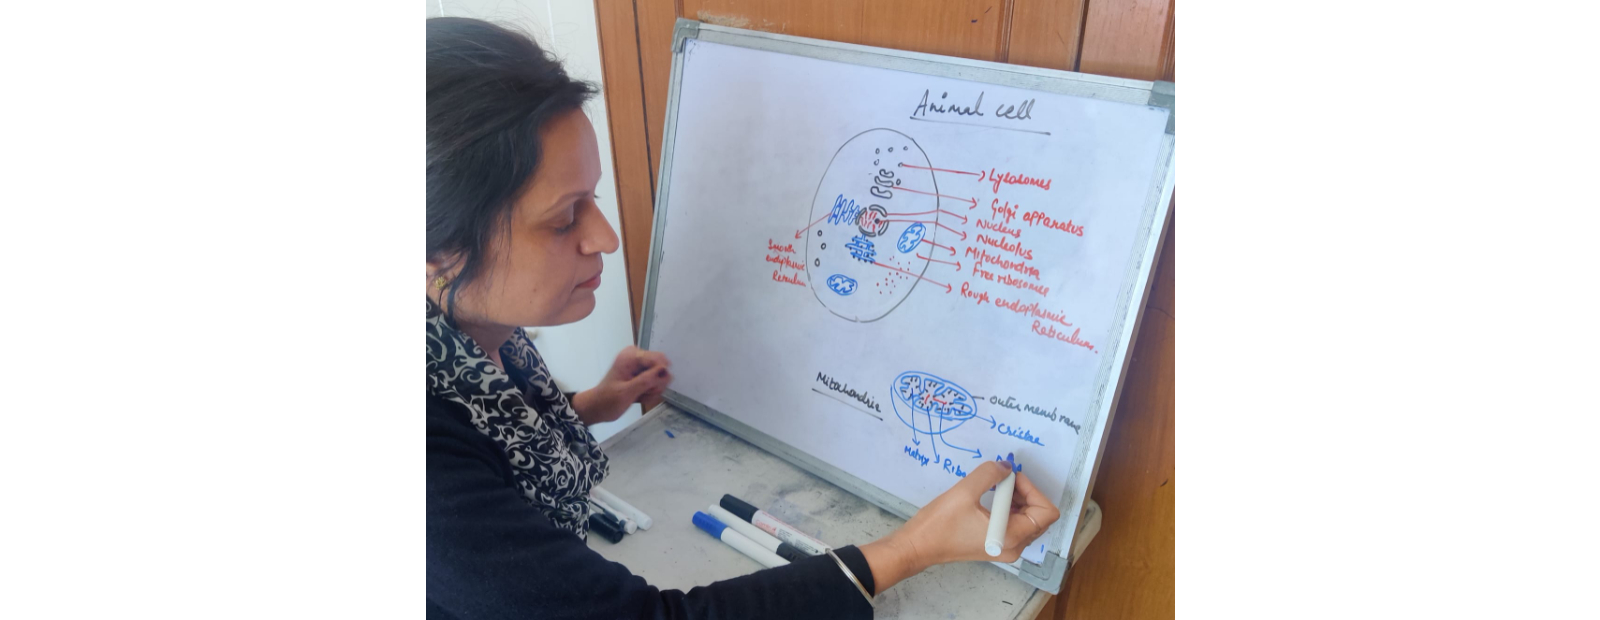 Animal cell
Lysosomes
Golgi apparatus
Nucleus
Nucleolus
Mitochondria
Free ribosomes
Rough endoplasmic
Reticulum.
Smooth
endoplasmic
Reticulum
Mitochondria
Outer membrane
Cristae
Matrix